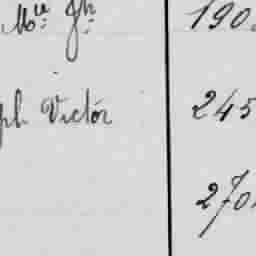 Mie Jh 190
ph Victor 245
270